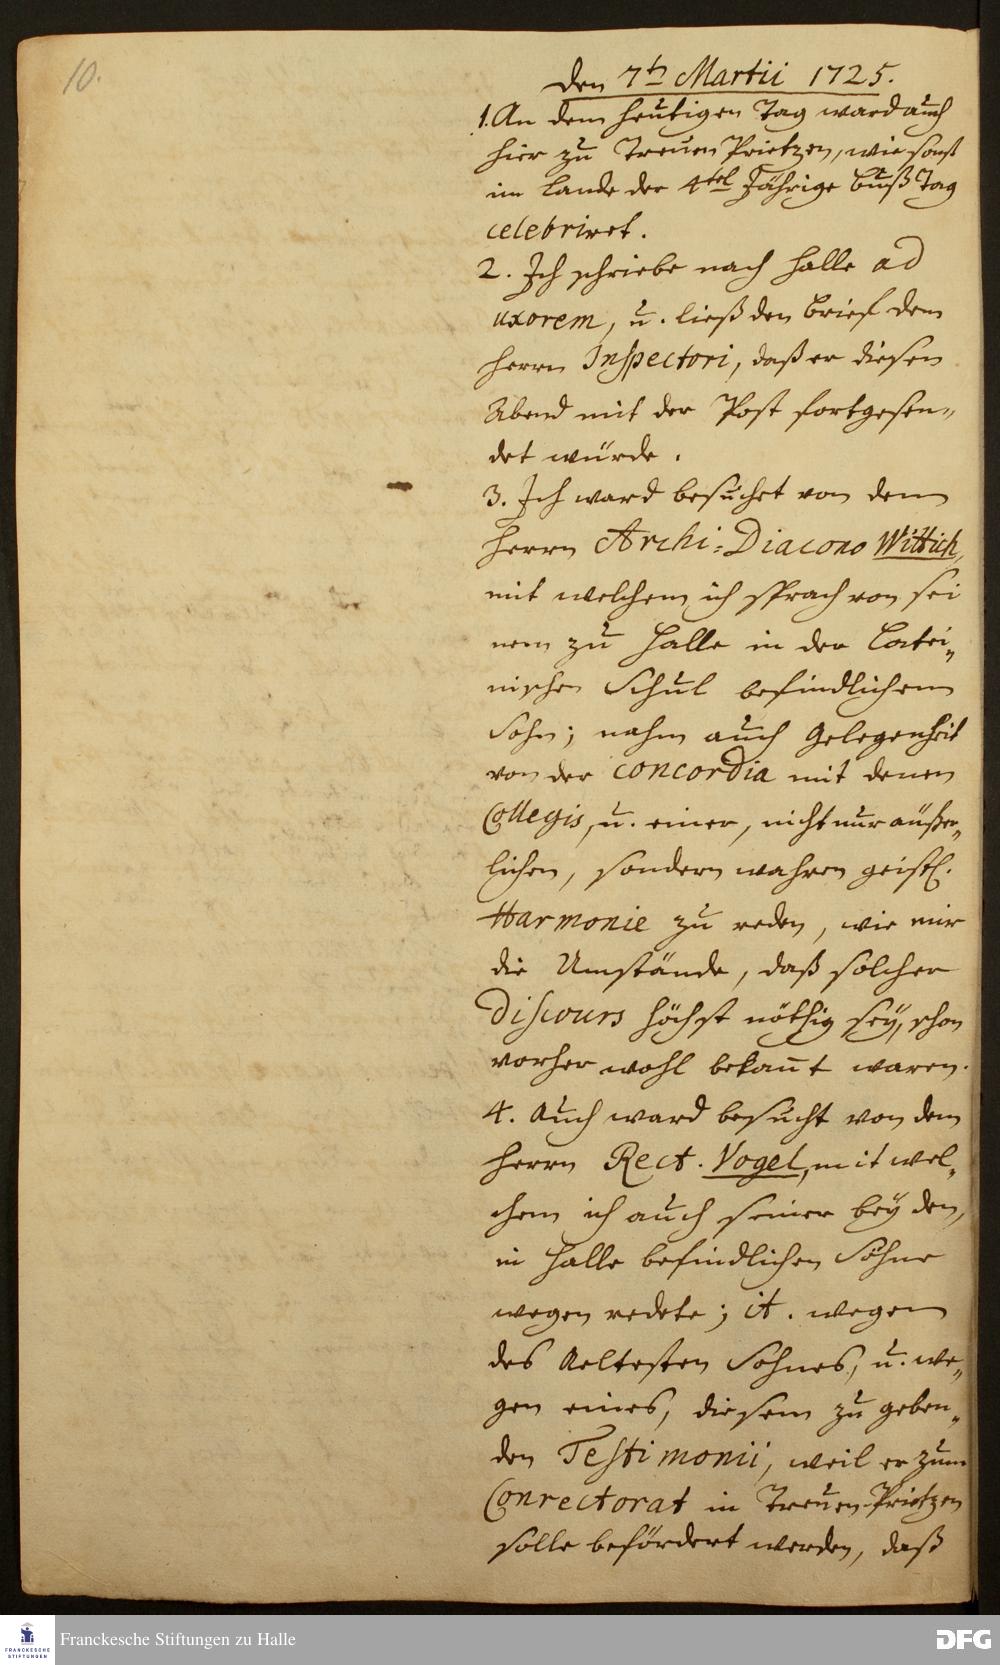 10.
den 7t. Martii 1725.
1. An dem heutigen Tag ward auch
hier zu Treuen Prietzen, wie sonst
im Lande der 4tel Jährige Buß Tag
celebriret.
2. Ich schriebe nach Halle ad
uxorem, u. ließ den Brief dem
Herrn Inspectori, daß er diesen
Abend mit der Post fortgesen„
det würde.
3. Ich ward besuchet von dem
Herrn Archi-Diacono Wittich,
mit welchem ich sprach von sei
nem zu Halle in der Latei„
nischen Schul befindlichem
Sohn; nahm auch Gelegenheit
von der Concordia mit denen
Collegis, u. einer, nicht nur äußer„
lichen, sondern wahren geistl.
Harmonie zu reden, wie mir
die Umstände, daß solcher
Discours höchst nöthig seÿ, schon
vorher wohl bekannt waren.
4. Auch ward besucht von dem
Herrn Rect. Vogel, mit wel„
chem ich auch seiner beÿden,
in Halle befindlichen Söhne
wegen redete; it. wegen
des Aeltesten Sohnes, u. we„
gen eines, diesem zu geben„
den Testimonii, weil er zum
Conrectorat in Treuen-Prietzen
solle befördert werden, daß
FRANCKESCHE
STIFTUNGEN
Franckesche Stiftungen zu Halle
DFG